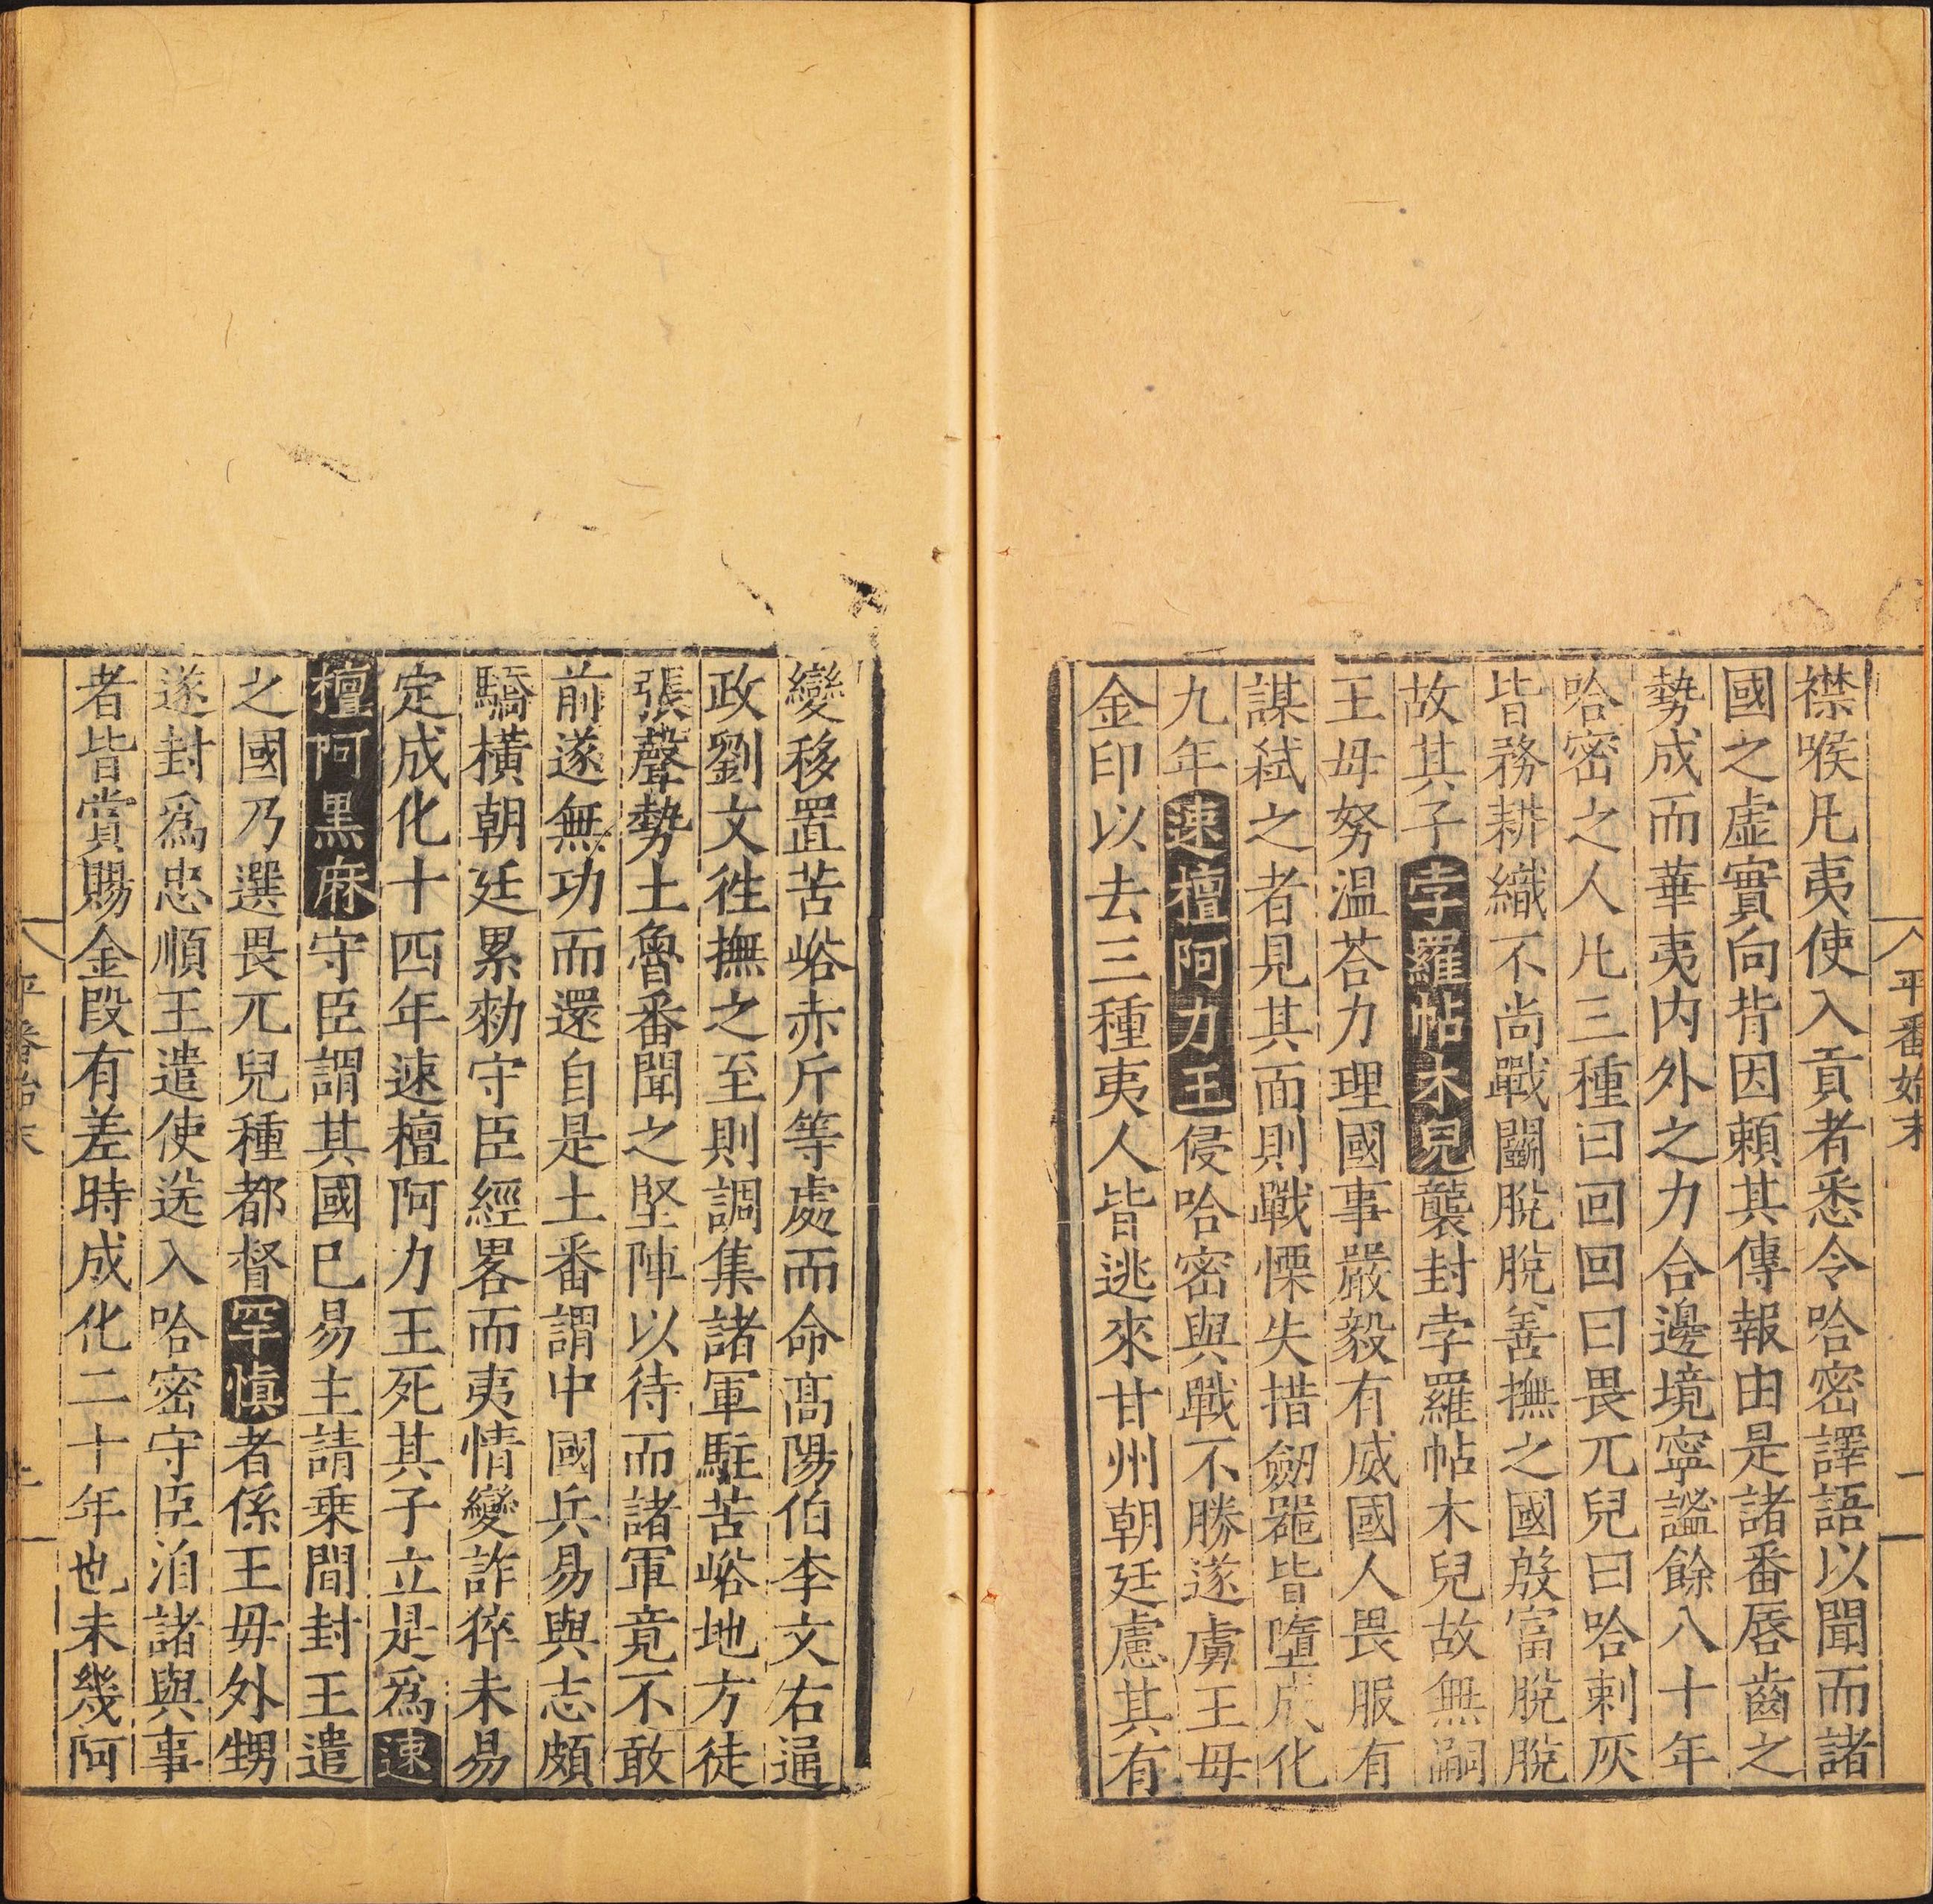 平番始末
一
襟喉凡夷使入貢者悉令哈密譯語以聞而諸
國之虛實向背因賴其傳報由是諸番唇齒之
勢成而華夷内外之力合邊境寧謐餘八十年
哈密之人凡三種曰回回曰畏兀兒曰哈剌灰
皆務耕織不尚戰鬭脫脫善撫之國殷富脫脫
故其子孛羅帖木兒襲封孛羅帖木兒故無嗣
王母努温荅力理國事嚴毅有威國人畏服有
謀弑之者見其面則戰慄失措劒器皆墮成化
九年速檀阿力王侵哈密與戰不勝遂虜王母
金印以去三種夷人皆逃來甘州朝廷慮其有
變移置苦峪赤斤等處而命髙陽伯李文右通
政劉文徃撫之至則調集諸軍駐苦峪地方徒
張聲勢土魯番聞之堅陣以待而諸軍竟不敢
前遂無功而還自是土番謂中國兵易與志頗
驕橫朝廷累勑守臣經畧而夷情變詐猝未易
定成化十四年速檀阿力王死其子立是爲速
檀阿黒麻守臣謂其國已易主請乗間封王遣
之國乃選畏兀兒種都督罕慎者係王母外甥
遂封爲忠順王遣使送入哈密守臣洎諸與事
者皆賞賜金段有差時成化二十年也未幾阿
平番始末